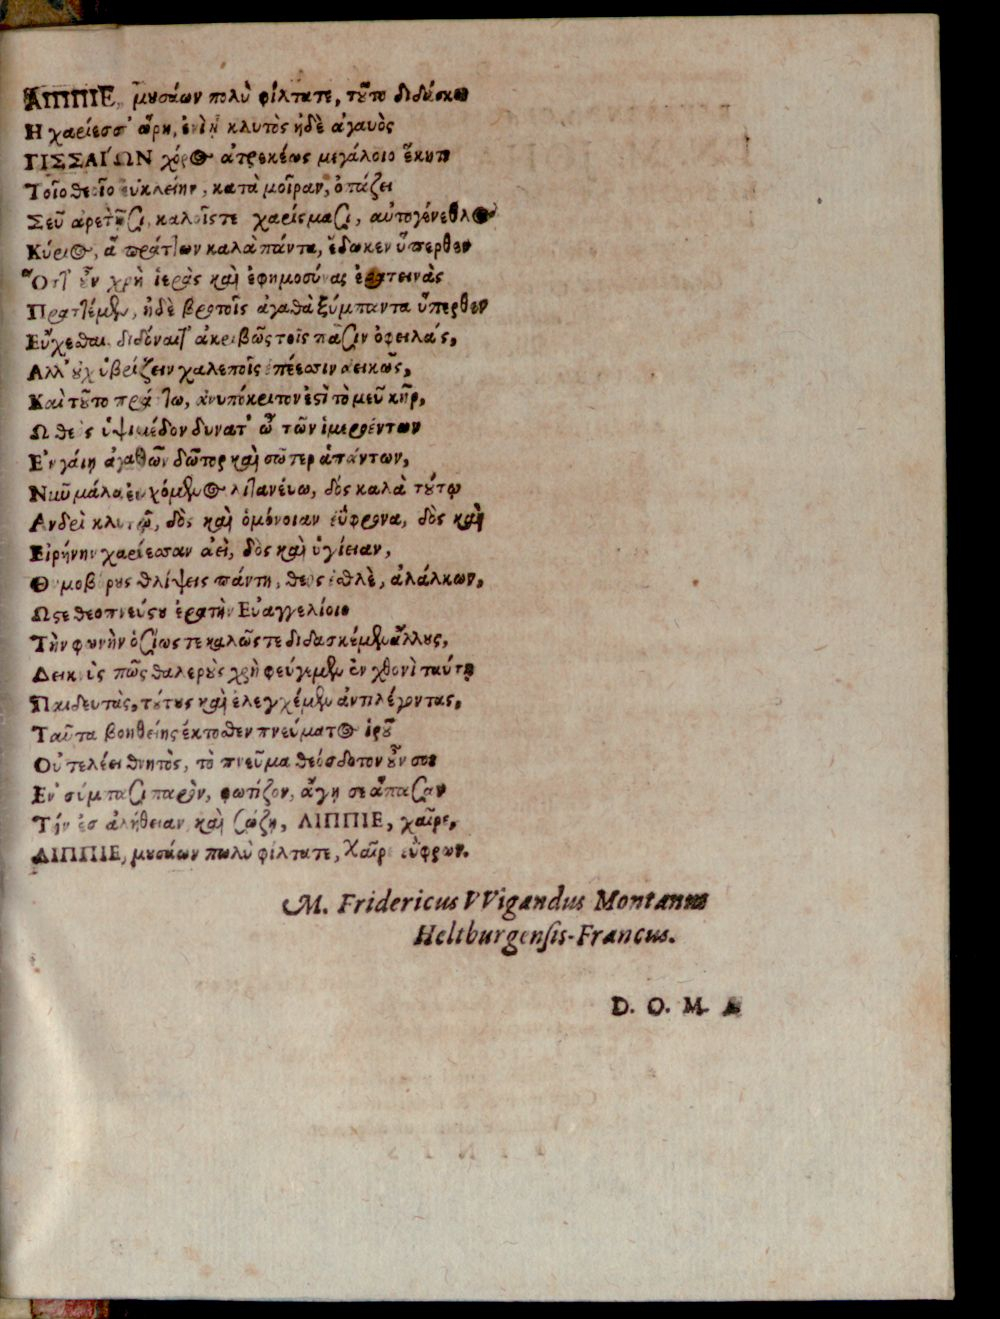 ΛΙΠΠΙΕ, μουσάων πολὺ φίλτατε, τοῦτο διδάσκω
Η χαρίεσσ' ὥρη, ἐνὶ ᾗ κλυτὸς ἠδὲ ἀγαυὸς
ΓΙΣΣΑΙΏΝ χόρος ἀτρεκέως μεγάλοιο ἕκητι
Τοῖο θεοῖο εὐκλείην, κατὰ μοῖραν, ὀπάζει
Σεῦ ἀρετῇσι, καλοῖς τε χαρίσμασι, αὐτογένεθλος
Κύριος, ἃ πράττων καλὰ πάντα, ἔδωκεν ὕπερθεν
Ὅττ' ἓν χρὴ ἱερὰς καὶ ἐφημοσύνας ἐρατεινὰς
Πραττέμεν, ἠδὲ βροτοῖς ἀγαθὰ ξύμπαντα ὕπερθεν
Εὔχεσθαι διδόναιτ' ἀκριβῶς τοῖς πᾶσιν ὀφειλάς,
Αλλ' οὐχ ὑβρίζειν χαλεποῖς ἐπέεσσιν ἀεικῶς,
Καὶ τοῦτο πράττω, ἀνυπόκριτον ἐστὶ τὸ μεῦ κῆρ,
Ω θεὸς ὑψιμέδον δυνατ' ὦ τῶν ἱμερρέντων
Εν γάιῃ ἀγαθῶν δῶτορ καὶ σῶτερ ἁπάντων,
Νῦν μάλα εὐχόμενος λιτανέυω, δὸς καλὰ τούτῳ
Ανδρὶ κλυτῷ, δὸς καὶ ὁμόνοιαν εὔφρονα, δὸς καὶ
Εἰρήνην χαρίεσσαν ἀεὶ, δὸς καὶ ὑγίειαν,
Θυμοβόρους θλίψεις πάντῃ, θεὸς ἐσθλὲ, ἀλάλκων,
Ως ε θεοπνεύστου ἐρατὴν Εὐαγγελίοιο
Τὴν φωνὴν ὁσίως τε καλῶς τε διδασκέμεν ἄλλους,
Δεικνὺς πῶς θαλεροὺς χρὴ φεύγεμεν ἐν χθονὶ ταύτῃ
Παιδευτὰς, τούτους καὶ ἐλεγχέμεν ἀντιλέγοντας,
Ταῦτα βοηθείης ἐκτοθεν πνεύματος ἱροῦ
Οὐ τελέει θνητὸς, τὸ πνεῦμα θεόσδοτον οὖν σοι
Εν σύμπασι παρὸν, φωτίζον, ἄγῃ σε ἅπασαν
Τὴν ἐσ ἀλήθειαν, καὶ σώζῃ, ΛΙΠΠΙΕ, χαῖρε,
ΛΙΠΠΙΕ, μουσάων πωλὺ φίλτατε, χαῖρε εὖφρον.
M. Fridericus VVigandus Montanus
Heltburgensis-Francus.
D. O. M. A